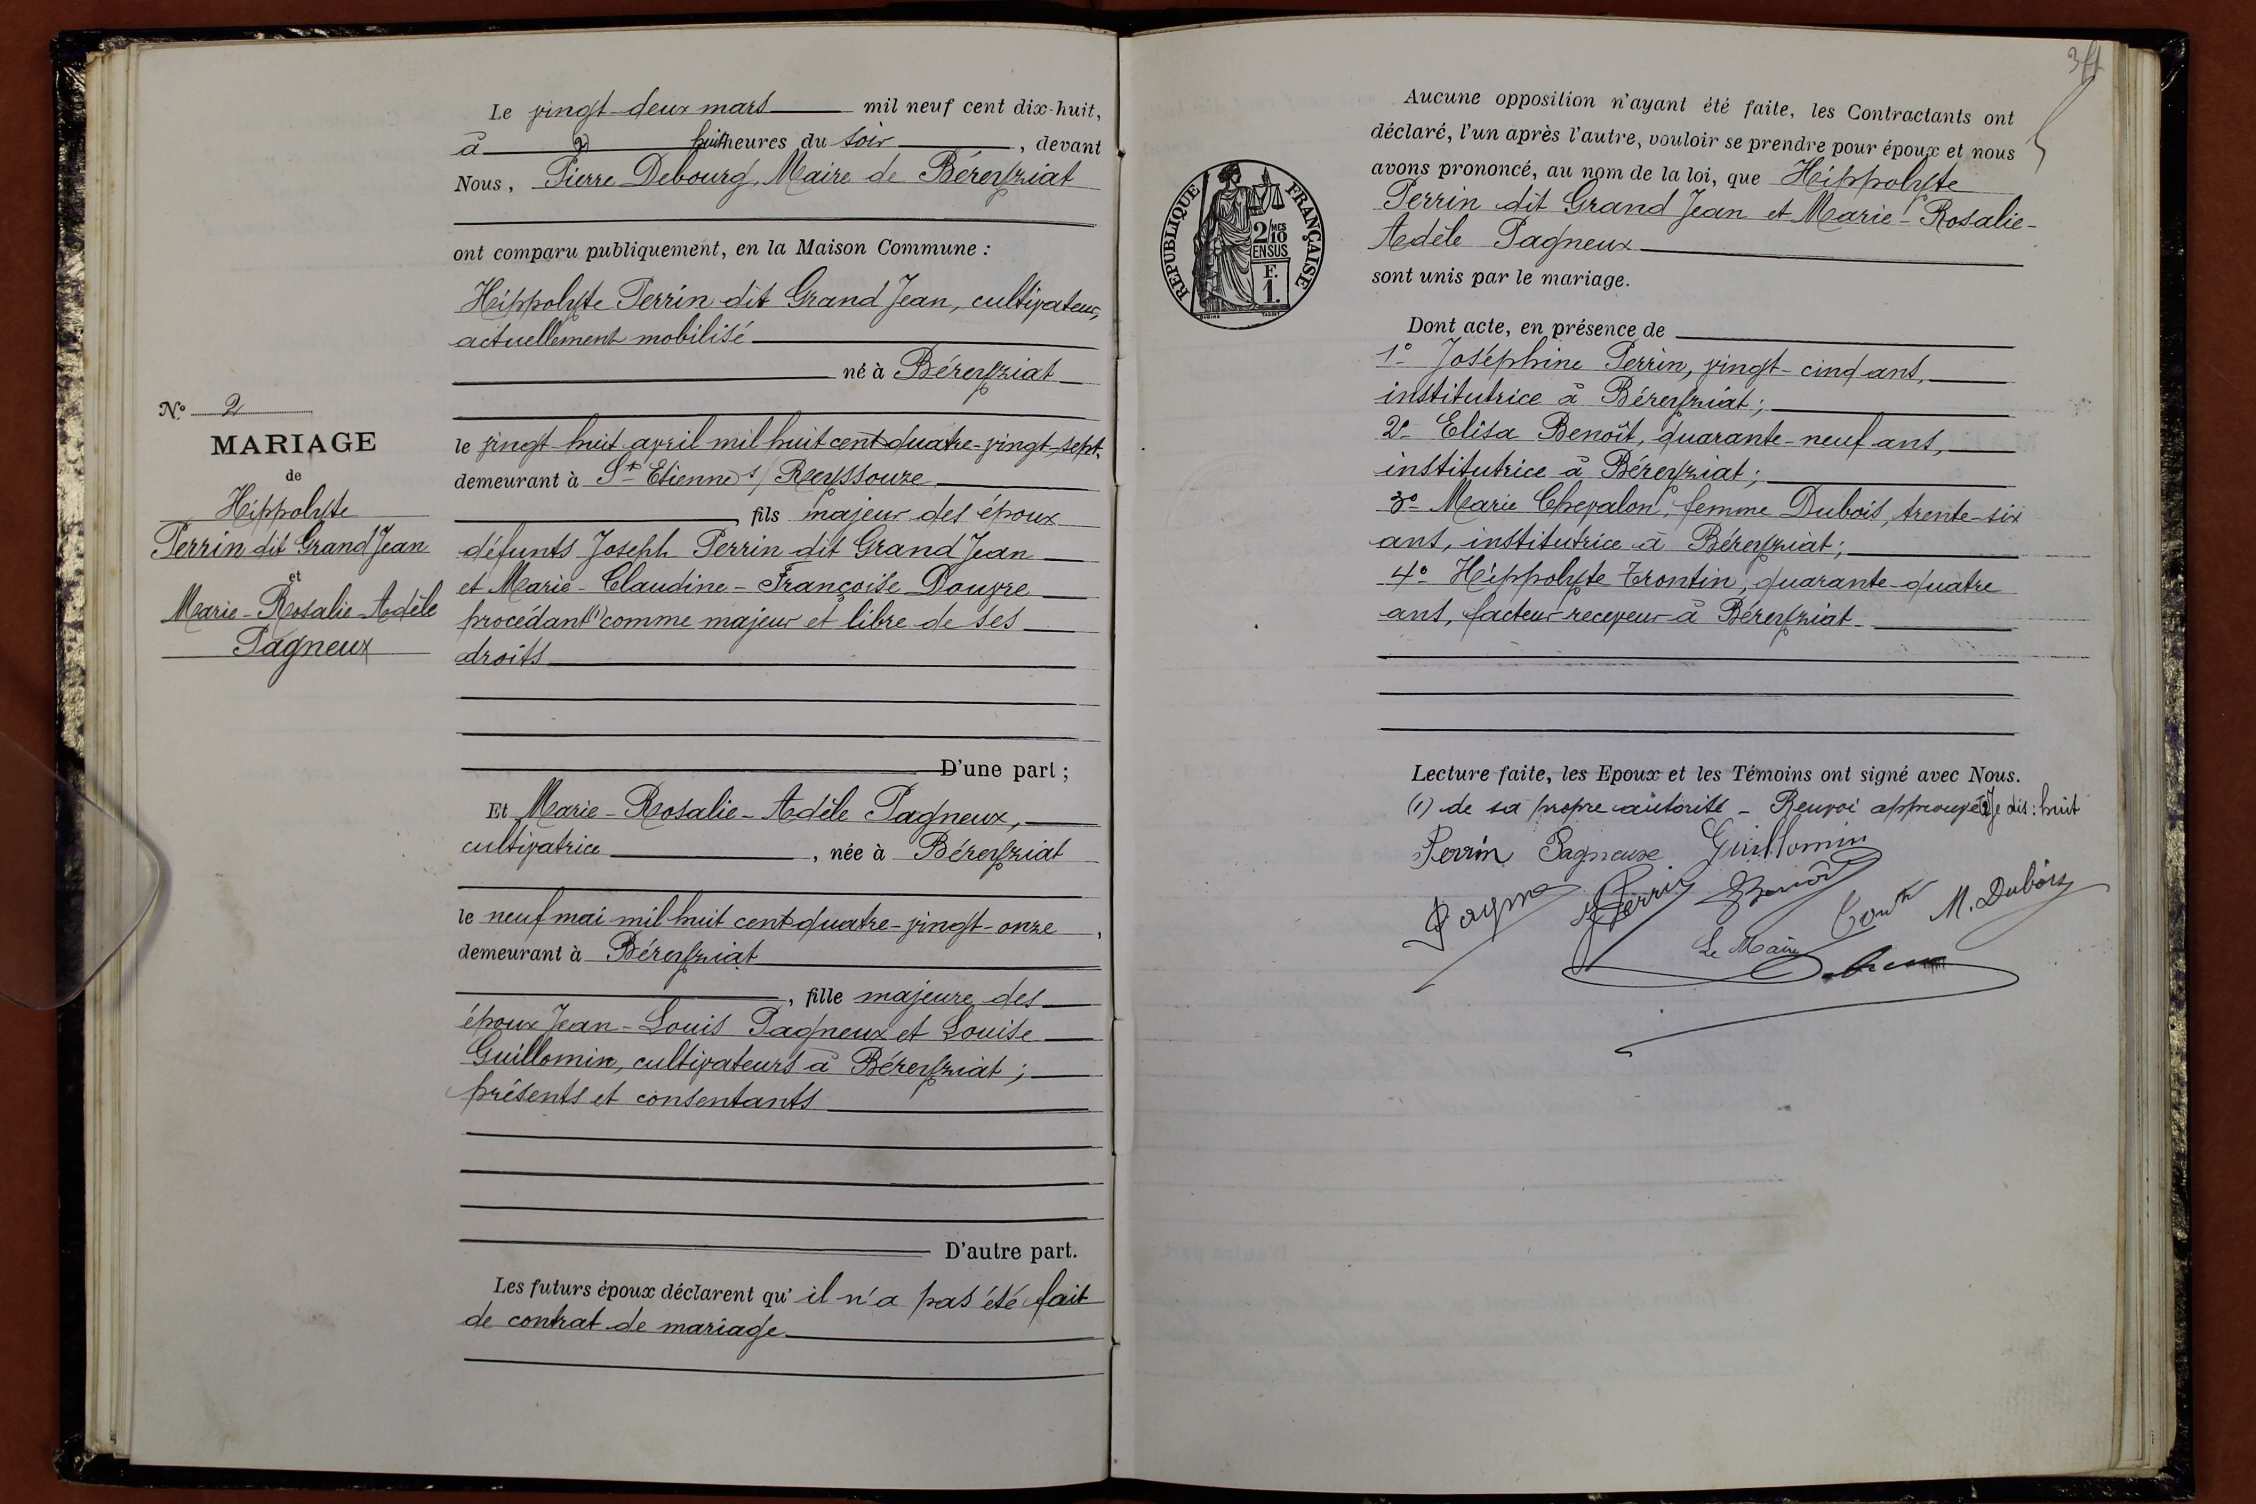 Le vingt-deux mars mil neuf cent dix-huit,
à (2) huit heures du soir, devant
Nous, Pierre Debourg, Maire de Béreyziat
ont comparu publiquement, en la Maison Commune :
Hippolyte Perrin dit Grand Jean, cultivateur,
actuellement mobilisé
né à Béreyziat
le vingt-huit avril mil huit cent quatre-vingt-sept,
demeurant à St Etienne s/ Reyssouze
, fils majeur des époux
défunts Joseph Perrin dit Grand Jean
et Marie-Claudine-Françoise Douvre
procédant (1) comme majeur et libre de ses
droits
D'une part ;
Et Marie-Rosalie-Adèle Pagneux,
cultivatrice, née à Béreyziat
le neuf mai mil huit cent quatre-vingt-onze,
demeurant à Béreyziat
, fille majeure des
époux Jean-Louis Pagneux et Louise
Guillomin, cultivateurs à Béreyziat ;
présents et consentants
D'autre part.
Les futurs époux déclarent qu'il n'a pas été fait
de contrat de mariage
N° 2
MARIAGE
de
Hippolyte
Perrin dit Grand Jean
et
Marie-Rosalie-Adèle
Pagneux
Aucune opposition n'ayant été faite, les Contractants ont
déclaré, l'un après l'autre, vouloir se prendre pour époux et nous
avons prononcé, au nom de la loi, que Hippolyte
Perrin dit Grand Jean et Marie-Rosalie-
Adèle Pagneux
sont unis par le mariage.
REPUBLIQUE FRANÇAISE
2/10 MES
EN SUS
F.
1.
Dont acte, en présence de
1° Joséphine Perrin, vingt-cinq ans,
institutrice à Béreyziat ;
2° Elisa Benoît, quarante-neuf ans,
institutrice à Béreyziat ;
3° Marie Chevalon, femme Dubois, trente-six
ans, institutrice à Béreyziat ;
4° Hippolyte Trontin, quarante-quatre
ans, facteur-receveur à Béreyziat
Lecture faite, les Epoux et les Témoins ont signé avec Nous.
(1) de sa propre autorité - Renvoi approuvé (2) Je dis : huit
Perrin Pagneux Guillomin
J Perrin Benoît M. Dubois
Le Maire